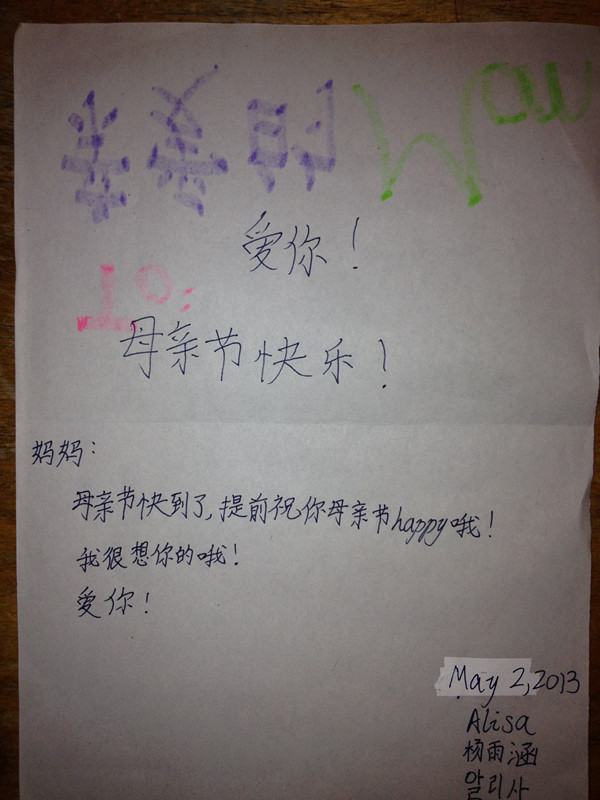 Mom
爱你！
To:
母亲节快乐！
妈妈：
母亲节快到了，提前祝你母亲节happy哦！
我很想你的哦！
爱你！
May 2, 2013
Alisa
杨雨涵
알리사